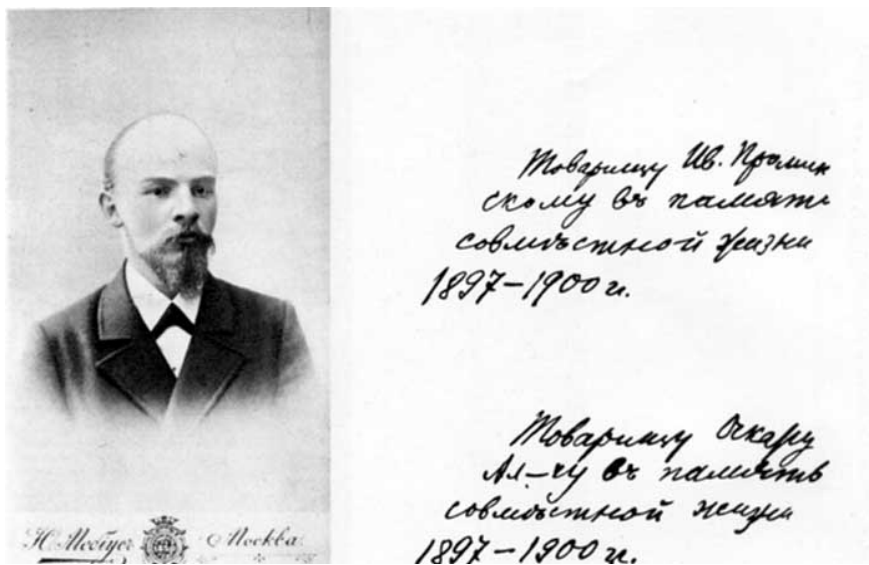 Н. Мебіусъ Москва
Товарищу Ив. Промин
скому въ память
совмѣстной жизни
1897–1900 гг.
Товарищу Оскару
Ал–чу въ память
совмѣстной жизни
1897–1900 гг.